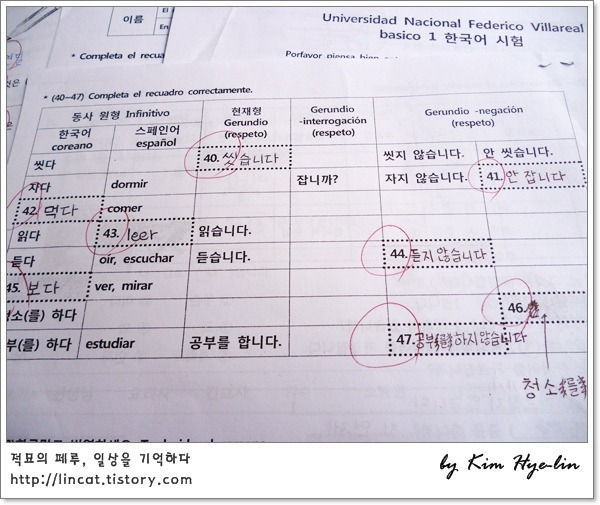 이름
Universidad Nacional Federico Villareal
basico 1 한국어 시험
* Completa el recua
Porfavor piensa bien
* (40~47) Completa el recuadro correctamente.
동사 원형 Infinitivo 현재형 Gerundio (respeto) Gerundio -interrogación (respeto) Gerundio -negación (respeto)
한국어 coreano 스페인어 español
씻다 40. 씻습니다 씻지 않습니다. 안 씻습니다.
자다 dormir 잡니까? 자지 않습니다. 41. 안 잡니다
42. 먹다 comer
읽다 43. leer 읽습니다.
듣다 oír, escuchar 듣습니다. 44. 듣지 않습니다
45. 보다 ver, mirar
청소(를) 하다 46.
공부(를) 하다 estudiar 공부를 합니다. 47. 공부를 하지 않습니다
청소를
적묘의 페루, 일상을 기억하다
http://lincat.tistory.com
by Kim Hye-lin